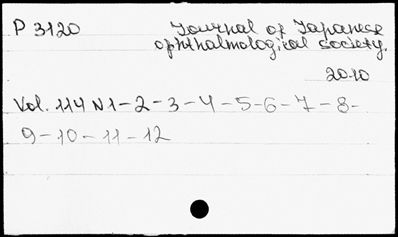 P 3120 Journal of Japanese
ophthalmological society.
2010
Vol. 114 N1-2-3-4-5-6-7-8-
9-10-11-12